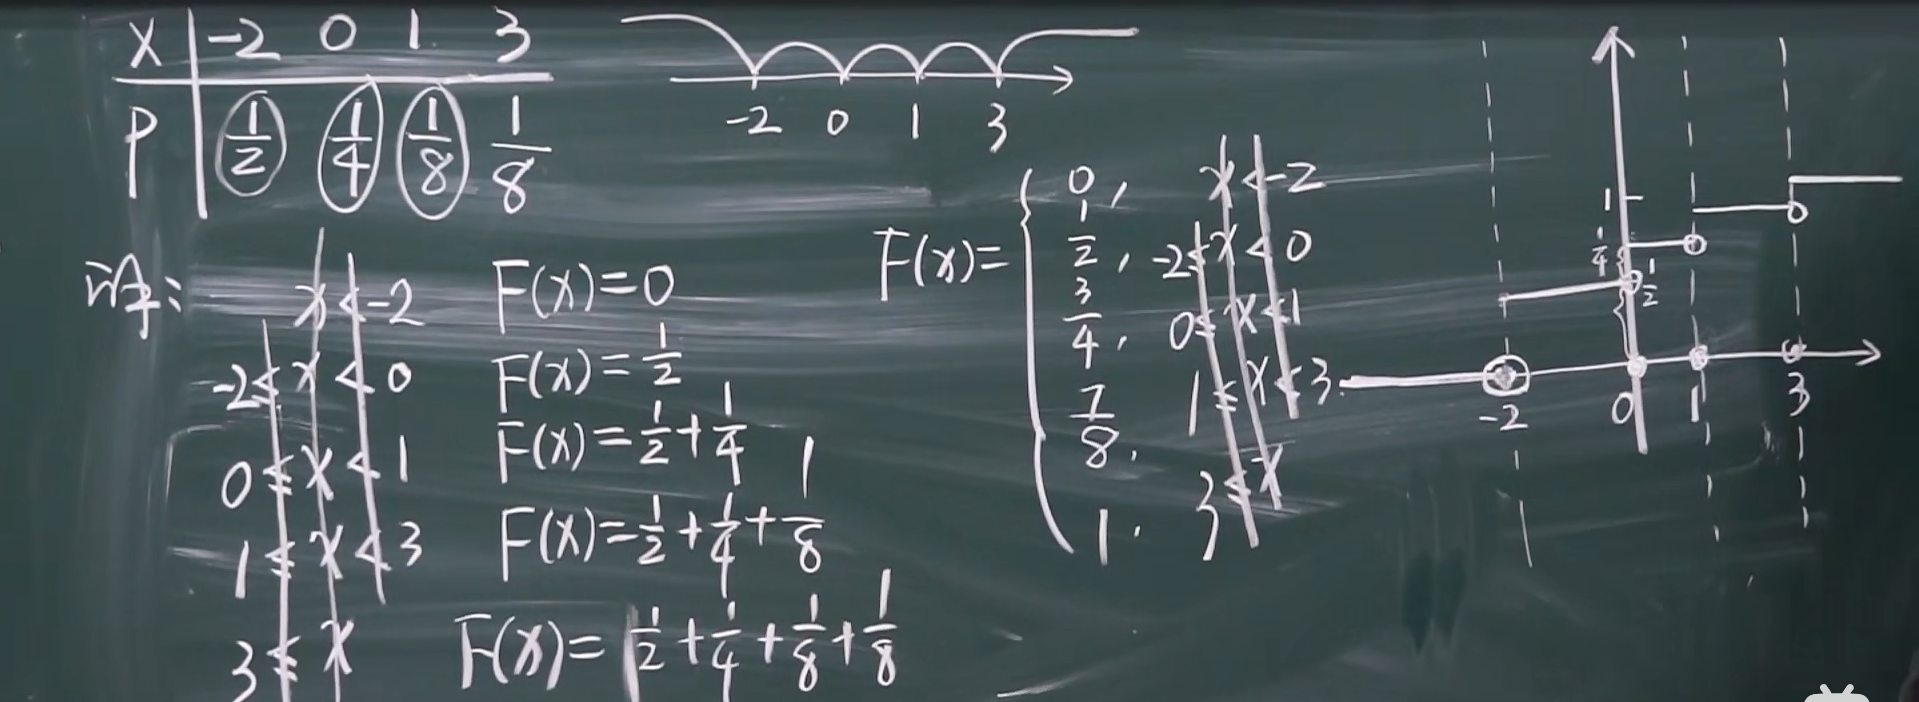 X -2 0 1 3
P 1/2 1/4 1/8 1/8
-2 0 1 3
解:
x<-2 F(x)=0
-2≤x<0 F(x)=1/2
0≤x<1 F(x)=1/2+1/4
1≤x<3 F(x)=1/2+1/4+1/8
3≤x F(x)=1/2+1/4+1/8+1/8
F(x)=
0, x<-2
1/2, -2≤x<0
3/4, 0≤x<1
7/8, 1≤x<3.
1. 3≤x
1
1/4
1/2
-2 0 1 3